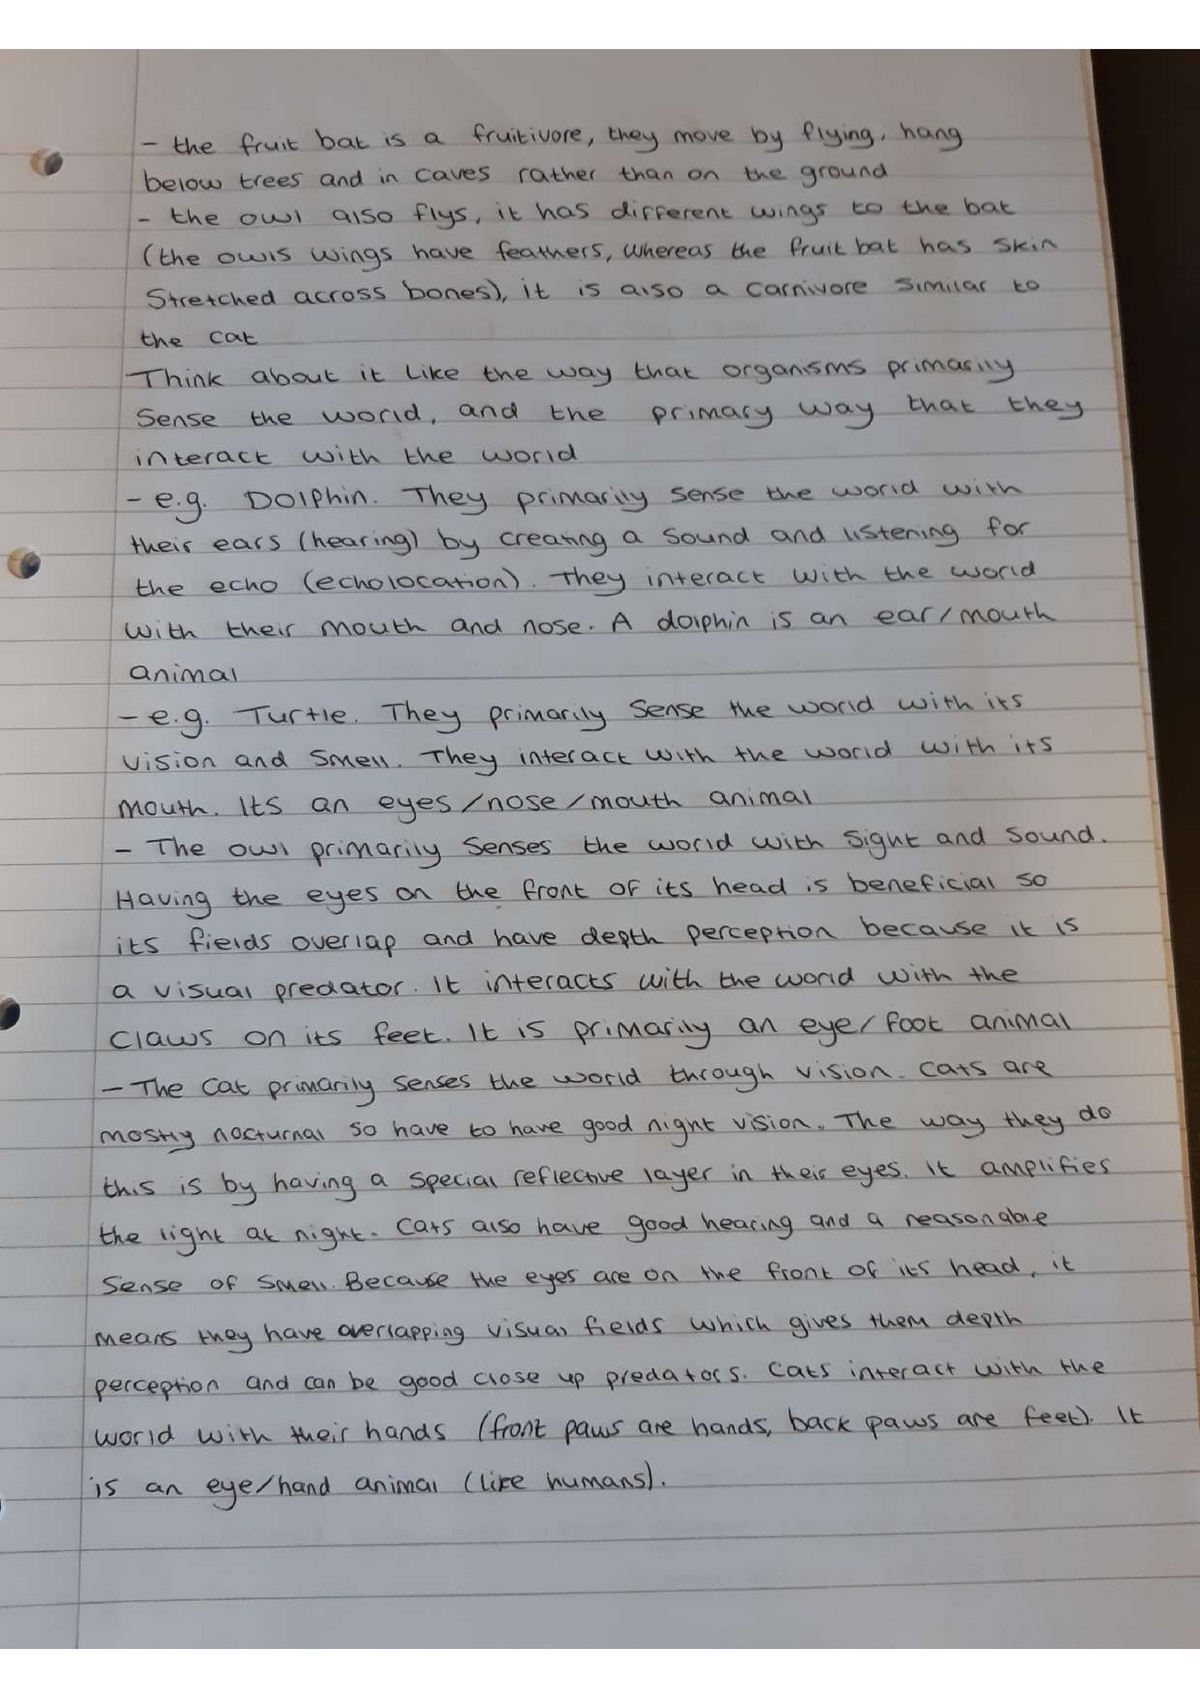 - the fruit bat is a fruitivore, they move by flying, hang
below trees and in caves rather than on the ground
- the owl also flys, it has different wings to the bat
(the owls wings have feathers, whereas the fruit bat has skin
stretched across bones), it is also a carnivore similar to
the cat
Think about it like the way that organisms primarily
sense the world, and the primary way that they
interact with the world
- e.g. Dolphin. They primarily sense the world with
their ears (hearing) by creating a sound and listening for
the echo (echolocation). They interact with the world
with their mouth and nose. A dolphin is an ear/mouth
animal
- e.g. Turtle. They primarily sense the world with its
vision and smell. They interact with the world with its
mouth. Its an eyes/nose/mouth animal
- The owl primarily senses the world with sight and sound.
Having the eyes on the front of its head is beneficial so
its fields overlap and have depth perception because it is
a visual predator. It interacts with the world with the
claws on its feet. It is primarily an eye/foot animal
- The cat primarily senses the world through vision. Cats are
mostly nocturnal so have to have good night vision. The way they do
this is by having a special reflective layer in their eyes. It amplifies
the light at night. Cats also have good hearing and a reasonable
sense of smell. Because the eyes are on the front of its head, it
means they have overlapping visual fields which gives them depth
perception and can be good close up predators. Cats interact with the
world with their hands (front paws are hands, back paws are feet). It
is an eye/hand animal (like humans).